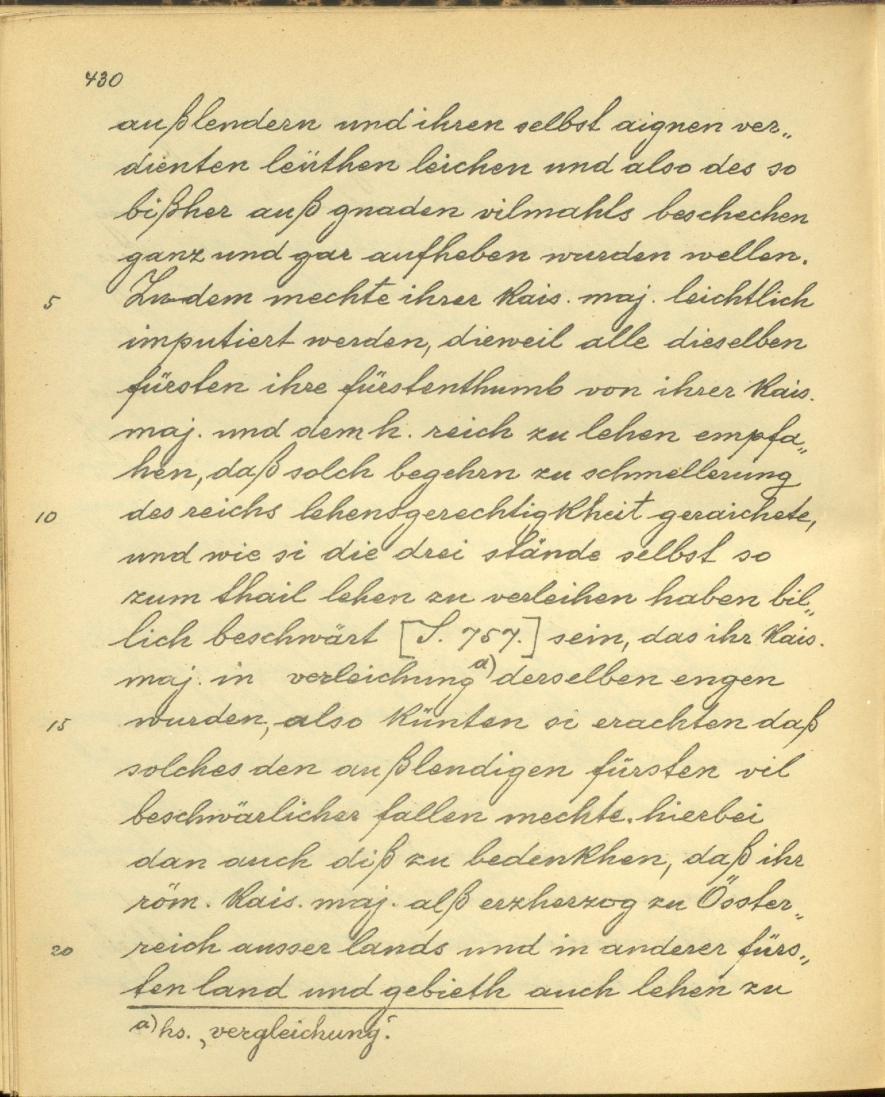 430
außlendern und ihren selbst aignen ver„
dienten leüthen leichen und also des so
bißher auß gnaden vilmahls beschechen
ganz und gar aufheben wurden wellen.
5 Zu dem mechte ihrer kais. maj. leichtlich
imputiert werden, dieweil alle dieselben
fürsten ihre fürstenthumb von ihrer kais.
maj. und dem h. reich zu lehen empfa„
hen, daß solch begehrn zu schmellerung
10 des reichs lehensgerechtigkheit geraichete,
und wie si die drei stände selbst so
zum thail lehen zu verleihen haben bil„
lich beschwärt [S. 757.] sein, das ihr kais.
maj. in verleichung a) derselben engen
15 wurden, also künten si erachten daß
solches den außlendigen fürsten vil
beschwärlicher fallen mechte. hierbei
dan auch diß zu bedenkhen, daß ihr
röm. kais. maj. alß erzherzog zu Öster„
20 reich ausser lands und in anderer fürs„
ten land und gebieth auch lehen zu
a) hs. „vergleichung“.